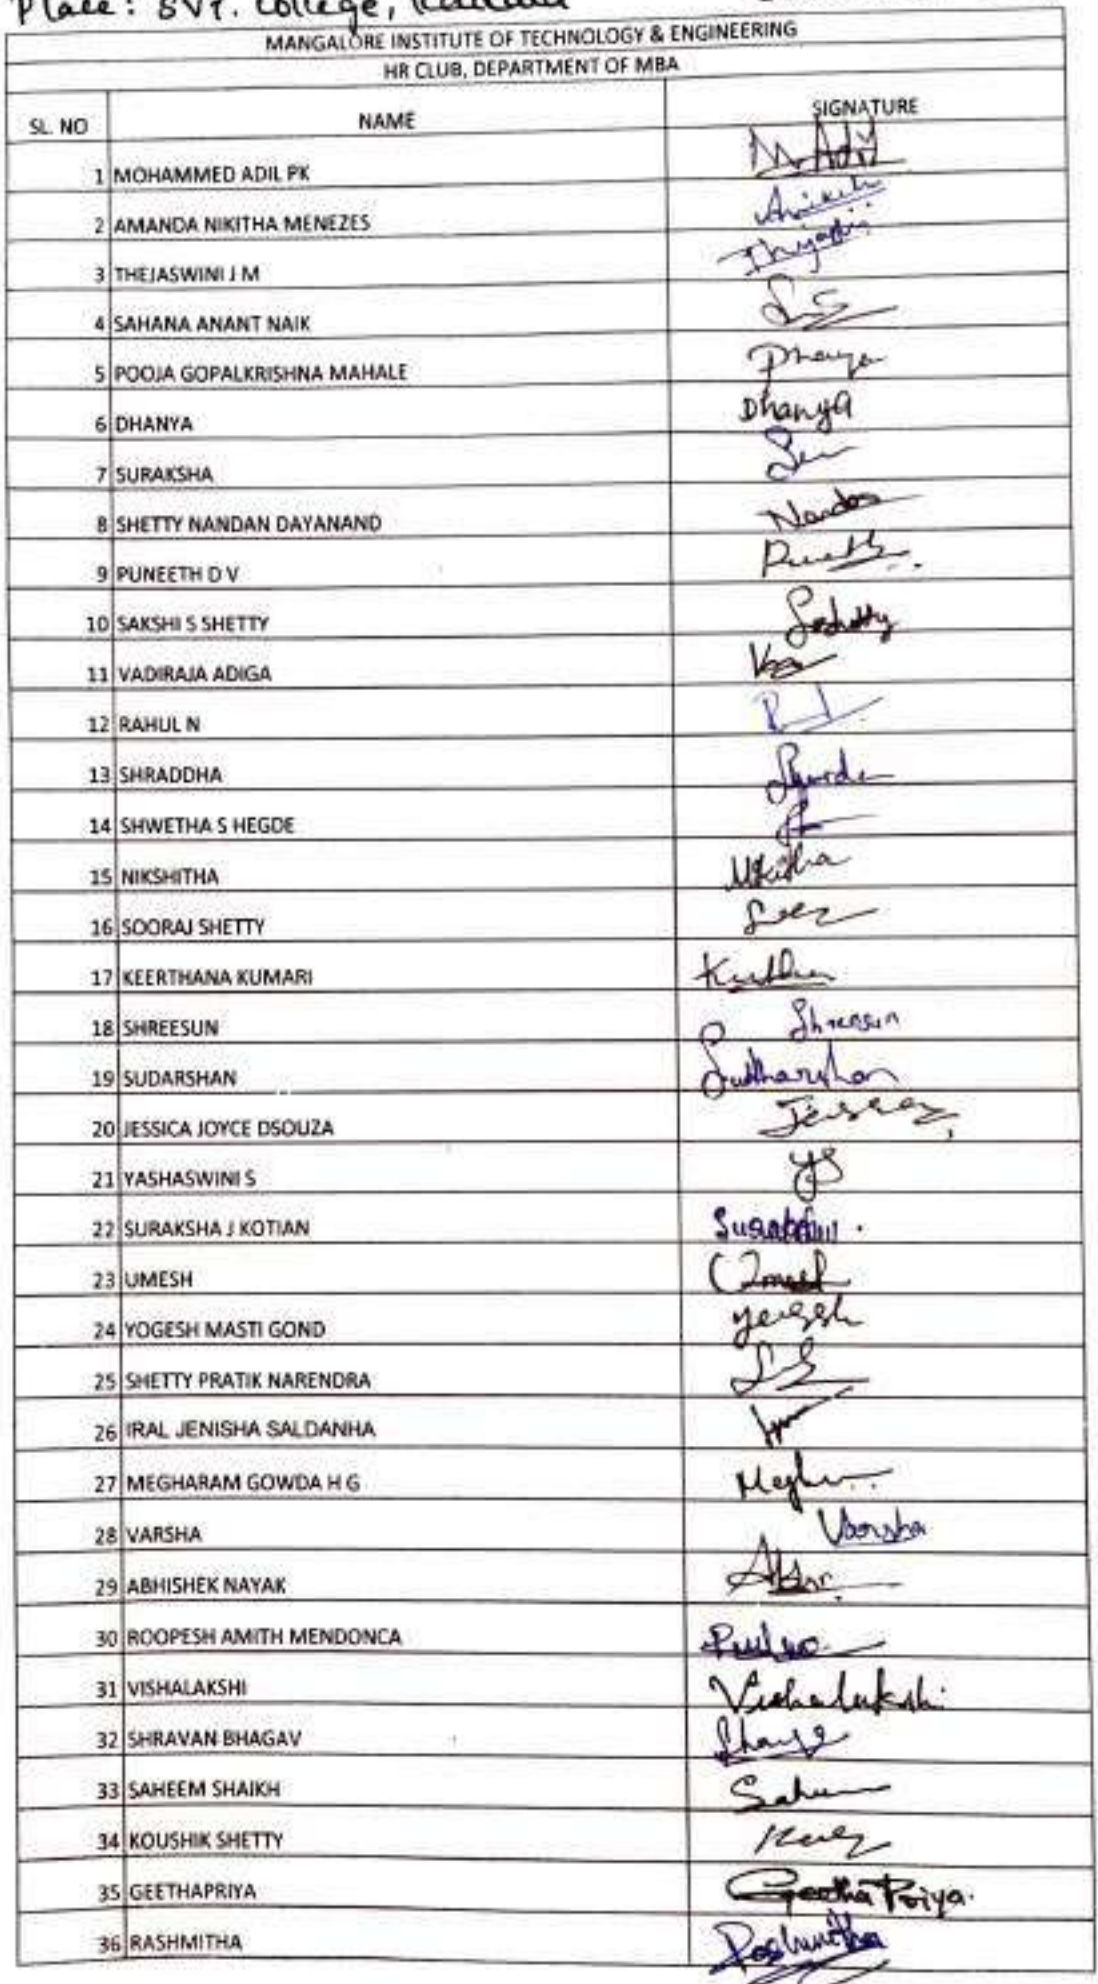 Place: SVT. College,
MANGALORE INSTITUTE OF TECHNOLOGY & ENGINEERING
HR CLUB, DEPARTMENT OF MBA
SL. NO NAME SIGNATURE
1 MOHAMMED ADIL PK M. Adil
2 AMANDA NIKITHA MENEZES
3 THEJASWINI J M
4 SAHANA ANANT NAIK
5 POOJA GOPALKRISHNA MAHALE
6 DHANYA Dhanya
7 SURAKSHA
8 SHETTY NANDAN DAYANAND Nandan
9 PUNEETH D V
10 SAKSHI S SHETTY
11 VADIRAJA ADIGA
12 RAHUL N
13 SHRADDHA
14 SHWETHA S HEGDE
15 NIKSHITHA
16 SOORAJ SHETTY
17 KEERTHANA KUMARI
18 SHREESUN Shreesun
19 SUDARSHAN Sudharshan
20 JESSICA JOYCE DSOUZA
21 YASHASWINI S YS
22 SURAKSHA J KOTIAN
23 UMESH Umesh
24 YOGESH MASTI GOND Yogesh
25 SHETTY PRATIK NARENDRA
26 IRAL JENISHA SALDANHA
27 MEGHARAM GOWDA H G
28 VARSHA Varsha
29 ABHISHEK NAYAK
30 ROOPESH AMITH MENDONCA
31 VISHALAKSHI Vishalakshi
32 SHRAVAN BHAGAV
33 SAHEEM SHAIKH
34 KOUSHIK SHETTY
35 GEETHAPRIYA Geetha Priya.
36 RASHMITHA Rashmitha